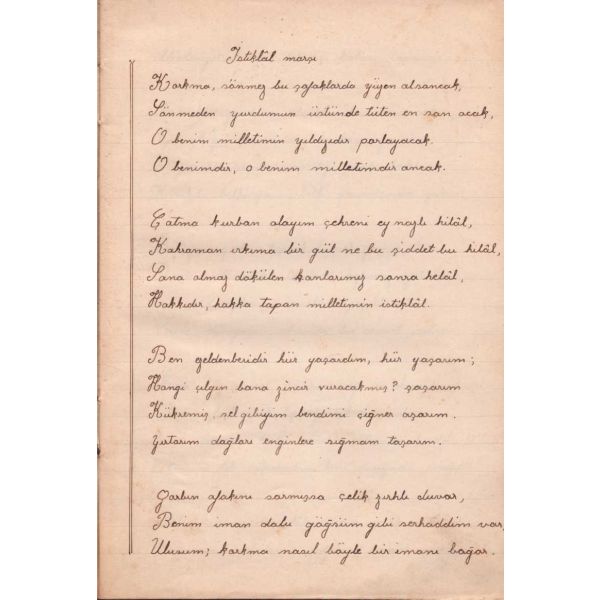 İstiklâl marşı
Korkma, sönmez bu şafaklarda yüzen alsancak,
Sönmeden yurdumun üstünde tüten en son ocak,
O benim milletimin yıldızıdır parlayacak.
O benimdir, o benim milletimdir ancak.
Çatma kurban olayım çehreni ey nazlı hilâl,
Kahraman ırkıma bir gül ne bu şiddet bu hilâl,
Sana olmaz dökülen kanlarımız sonra helâl,
Hakkıdır, hakka tapan milletimin istiklâl.
Ben ezeldenberidir hür yaşardım, hür yaşarım;
Hangi çılgın bana zincir vuracakmış? şaşarım
Kükremiş, sel gibiyim bendimi çiğner aşarım.
Yırtarım dağları enginlere sığmam taşarım.
Garbın afakını sarmışsa çelik zırhlı duvar,
Benim iman dolu göğsüm gibi serhaddim var,
Ulusum; korkma nasıl böyle bir imanı boğar.